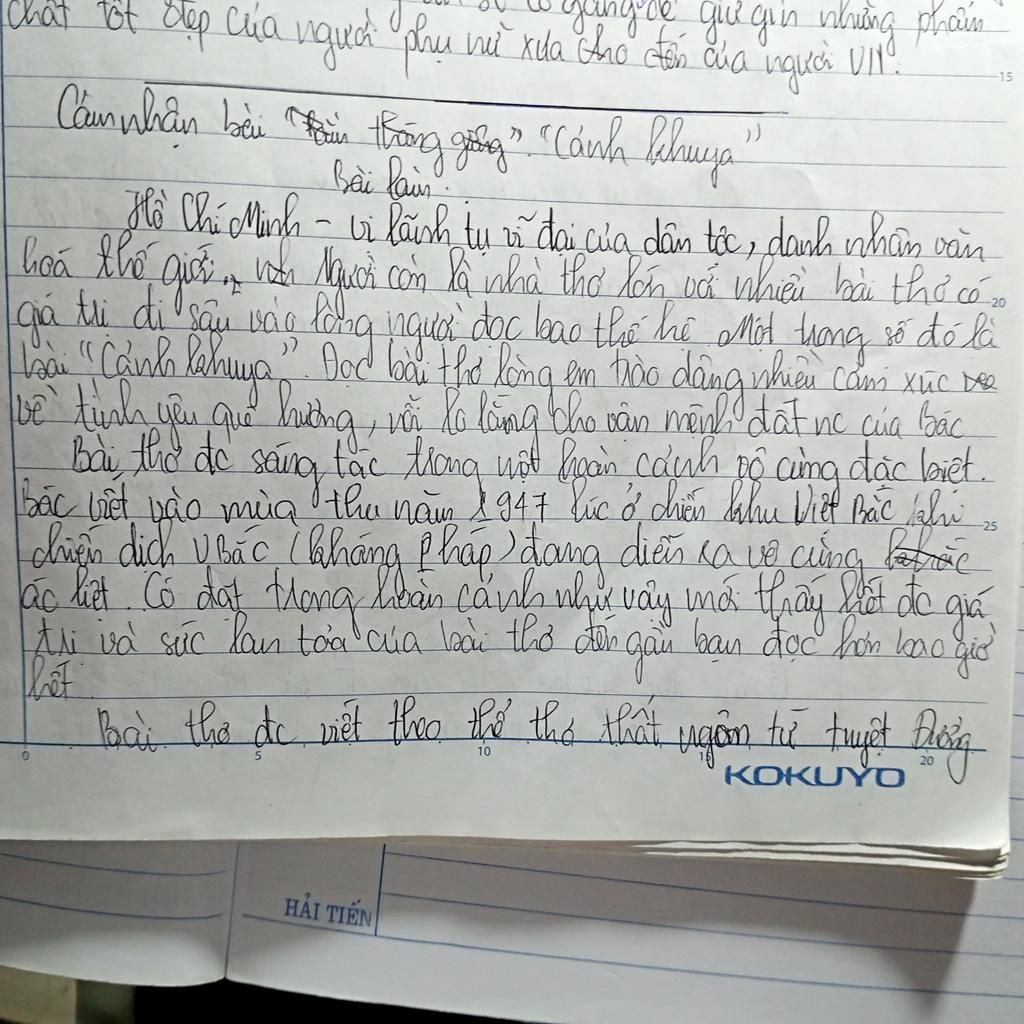 chất tốt đẹp của người phụ nữ xưa cho đến của người VN.
cố gắng để giữ gìn những phẩm
15
Cảm nhận bài "thắng giêng". "Cảnh khuya"
Bài làm.
Hồ Chí Minh - vị lãnh tụ vĩ đại của dân tộc, danh nhân văn
hoá thế giới, Người còn là nhà thơ lớn với nhiều bài thơ có
20
giá trị đi sâu vào lòng người đọc bao thế hệ. Một trong số đó là
bài "Cảnh khuya". Đọc bài thơ lòng em trào dâng nhiều cảm xúc
về tình yêu quê hương, nỗi lo lắng cho vận mệnh đất nc của bác
Bài thơ đc sáng tác trong một hoàn cảnh vô cùng đặc biệt.
Bác viết vào mùa thu năm 1947 lúc ở chiến khu Việt Bắc khi
25
chiến dịch VBắc (kháng Pháp) đang diễn ra vô cùng
ác liệt. Có đặt trong hoàn cảnh như vậy mới thấy hết đc giá
trị và sức lan tỏa của bài thơ đến gần bạn đọc hơn bao giờ
hết.
Bài thơ đc viết theo thể thơ thất ngôn tứ tuyệt Đường
0 5 10 15 20
KOKUYO
HẢI TIẾN